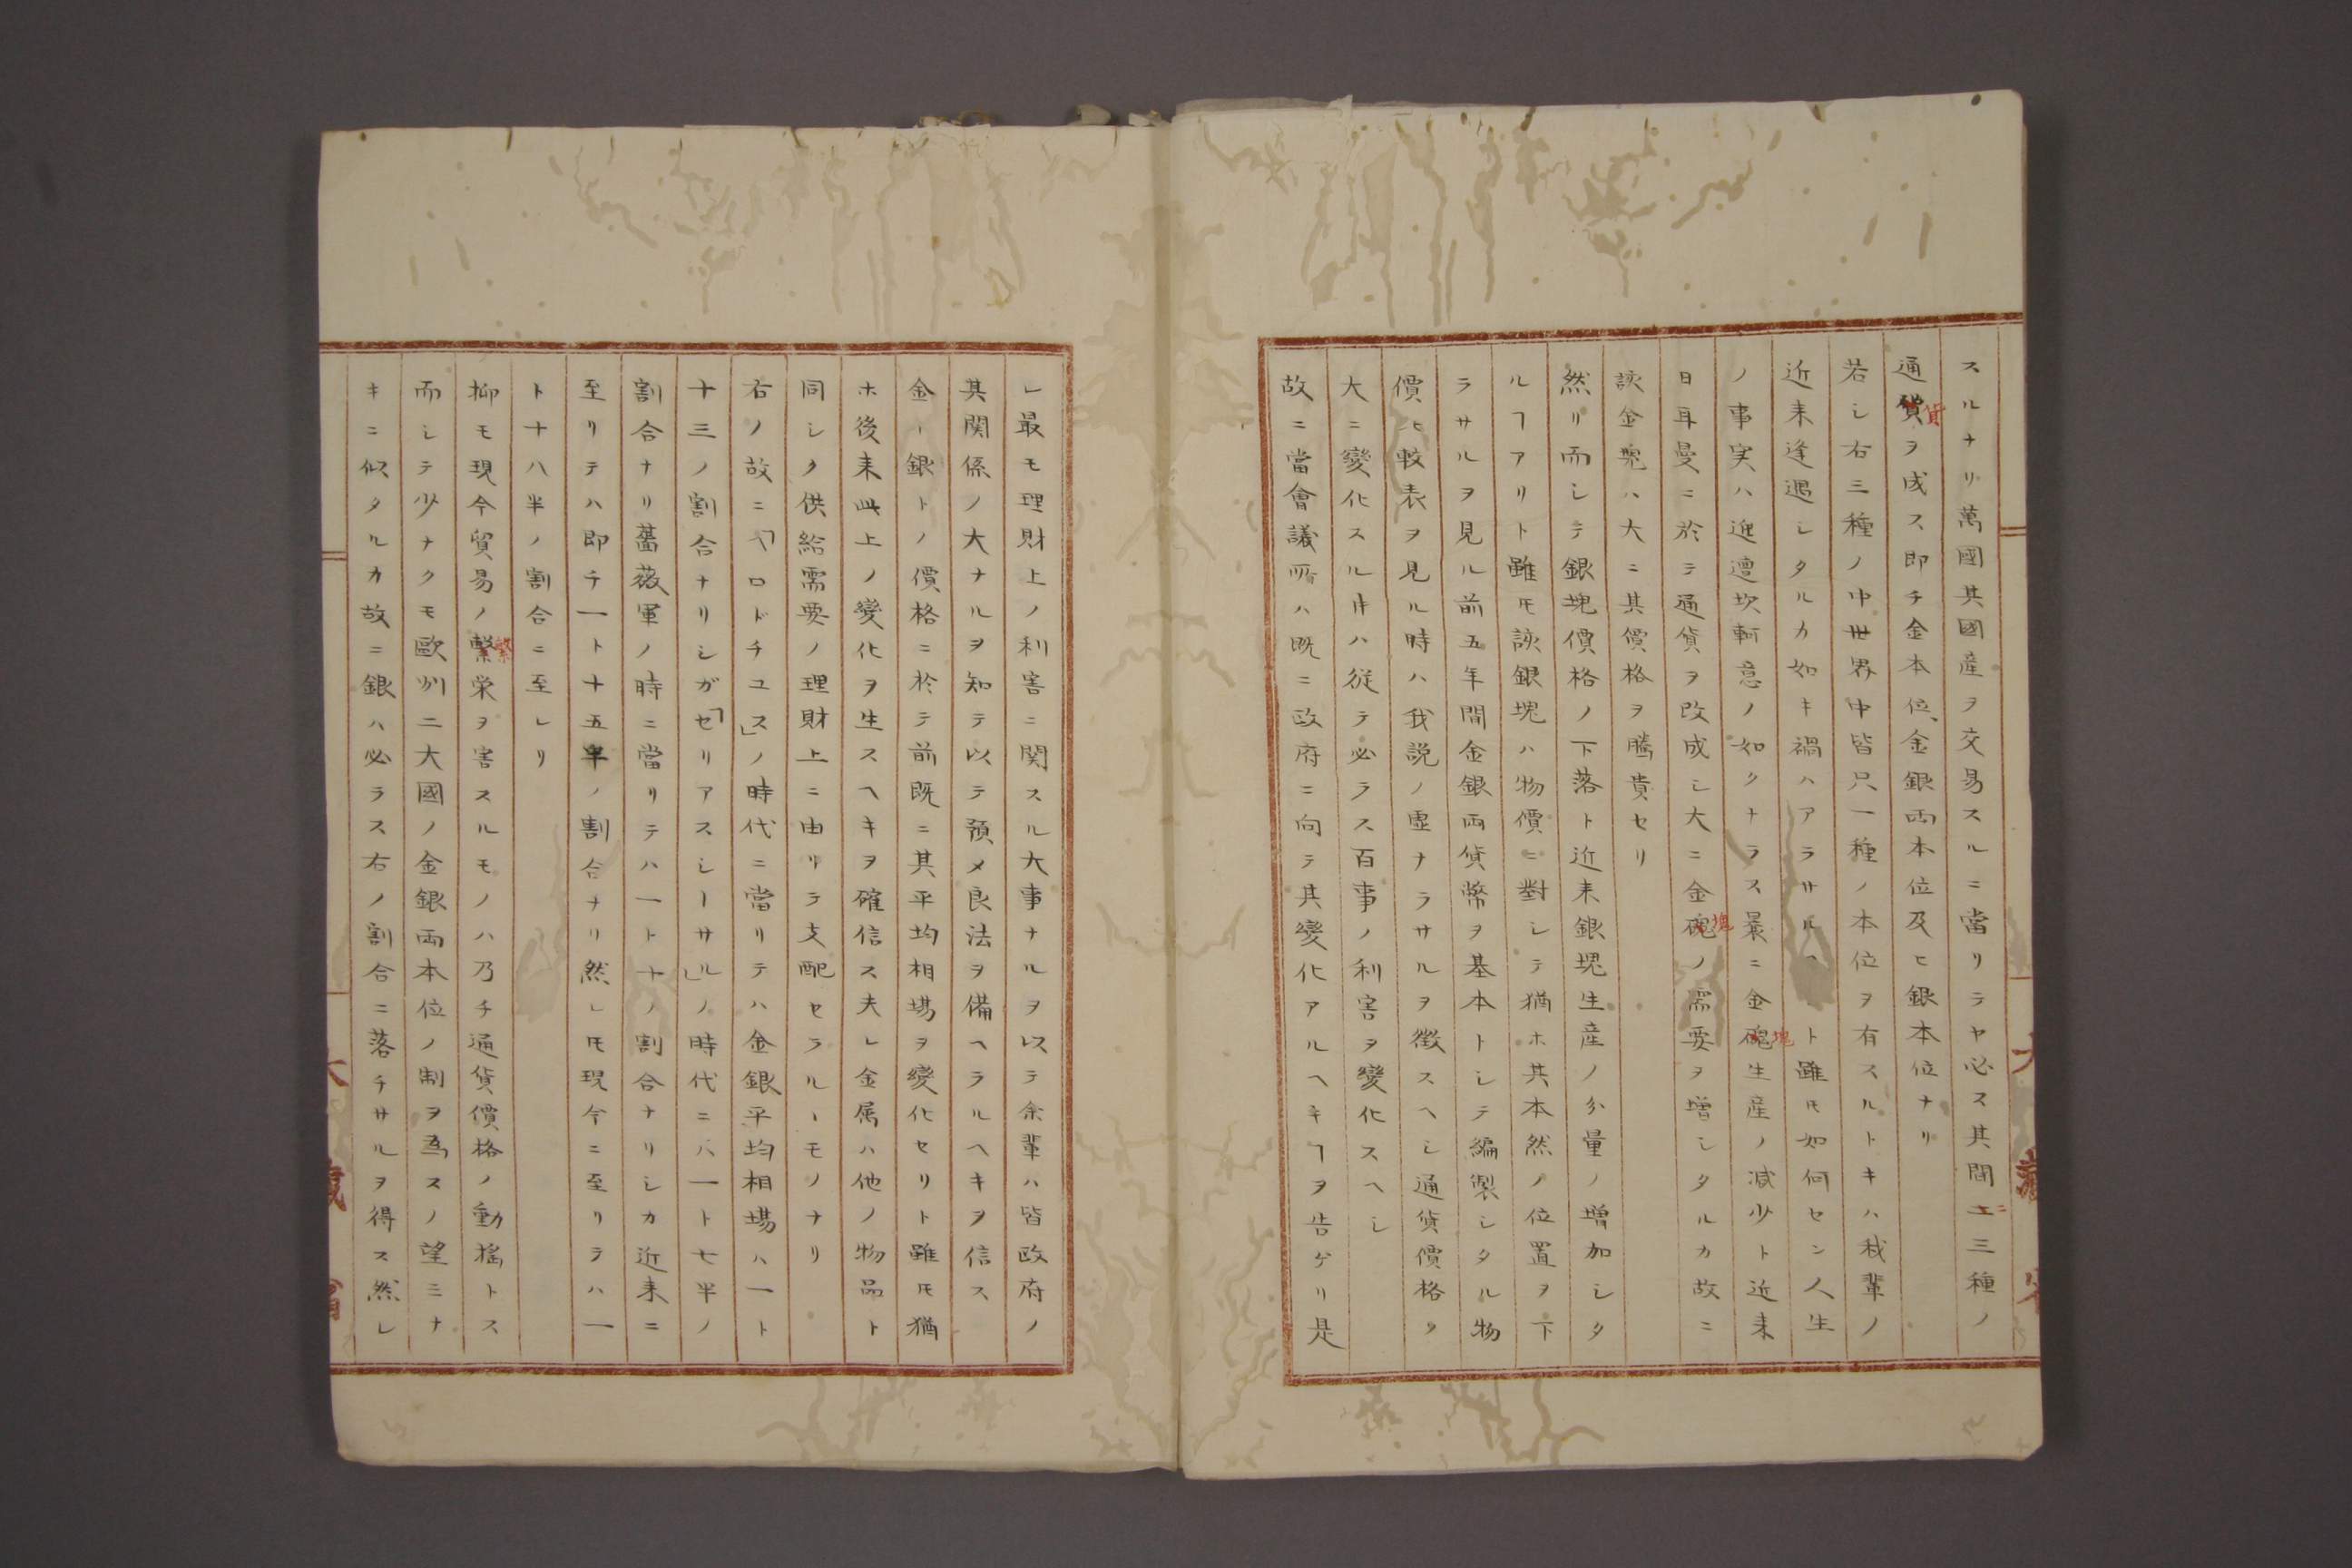 スルナリ萬國其國産ヲ交易スルニ當リテヤ必ス其間ニ三種ノ
通貨ヲ成ス即チ金本位、金銀兩本位及ヒ銀本位ナリ
若シ右三種ノ中世界中皆只一種ノ本位ヲ有スルトキハ我輩ノ
近来逢遇シタルカ如キ禍ハアラサルヘシト雖モ如何セン人生
ノ事実ハ迍邅坎軻意ノ如クナラス曩ニ金塊生産ノ減少ト近来
日耳曼ニ於テ通貨ヲ改成シ大ニ金塊ノ需要ヲ増シタルカ故ニ
該金塊ハ大ニ其價格ヲ騰貴セリ
然リ而シテ銀塊價格ノ下落ト近来銀塊生産ノ分量ノ増加シタ
ルヿアリト雖モ該銀塊ハ物價ニ對シテ猶ホ其本然ノ位置ヲ下
ラサルヲ見ル前五年間金銀兩貨幣ヲ基本トシテ編製シタル物
價比較表ヲ見ル時ハ我説ノ虚ナラサルヲ徴スヘシ通貨價格ノ
大ニ變化スル時ハ従テ必ラス百事ノ利害ヲ變化スヘシ
故ニ當會議所ハ既ニ政府ニ向テ其變化アルヘキヿヲ告ゲリ是
レ最モ理財上ノ利害ニ関スル大事ナルヲ以テ余輩ハ皆政府ノ
其関係ノ大ナルヲ知テ以テ預メ良法ヲ備ヘラルヘキヲ信ス
金ト銀トノ價格ニ於テ前既ニ其平均相場ヲ變化セリト雖モ猶
ホ後来此上ノ變化ヲ生スヘキヲ確信ス夫レ金属ハ他ノ物品ト
同シク供給需要ノ理財上ニ由リテ支配セラルヽモノナリ
右ノ故ニ「ヘロドチユス」ノ時代ニ當リテハ金銀平均相場ハ一ト
十三ノ割合ナリシガ「ゼリアスシーサル」ノ時代ニハ一ト七半ノ
割合ナリ薔薇軍ノ時ニ當リテハ一ト十ノ割合ナリシカ近来ニ
至リテハ即チ一ト十五半ノ割合ナリ然レモ現今ニ至リテハ一
ト十八半ノ割合ニ至レリ
抑モ現今貿易ノ繁栄ヲ害スルモノハ乃チ通貨價格ノ動揺トス
而シテ少ナクモ歐州二大國ノ金銀兩本位ノ制ヲ為スノ望ミナ
キニ似タルカ故ニ銀ハ必ラス右ノ割合ニ落チサルヲ得ス然レ
大藏省